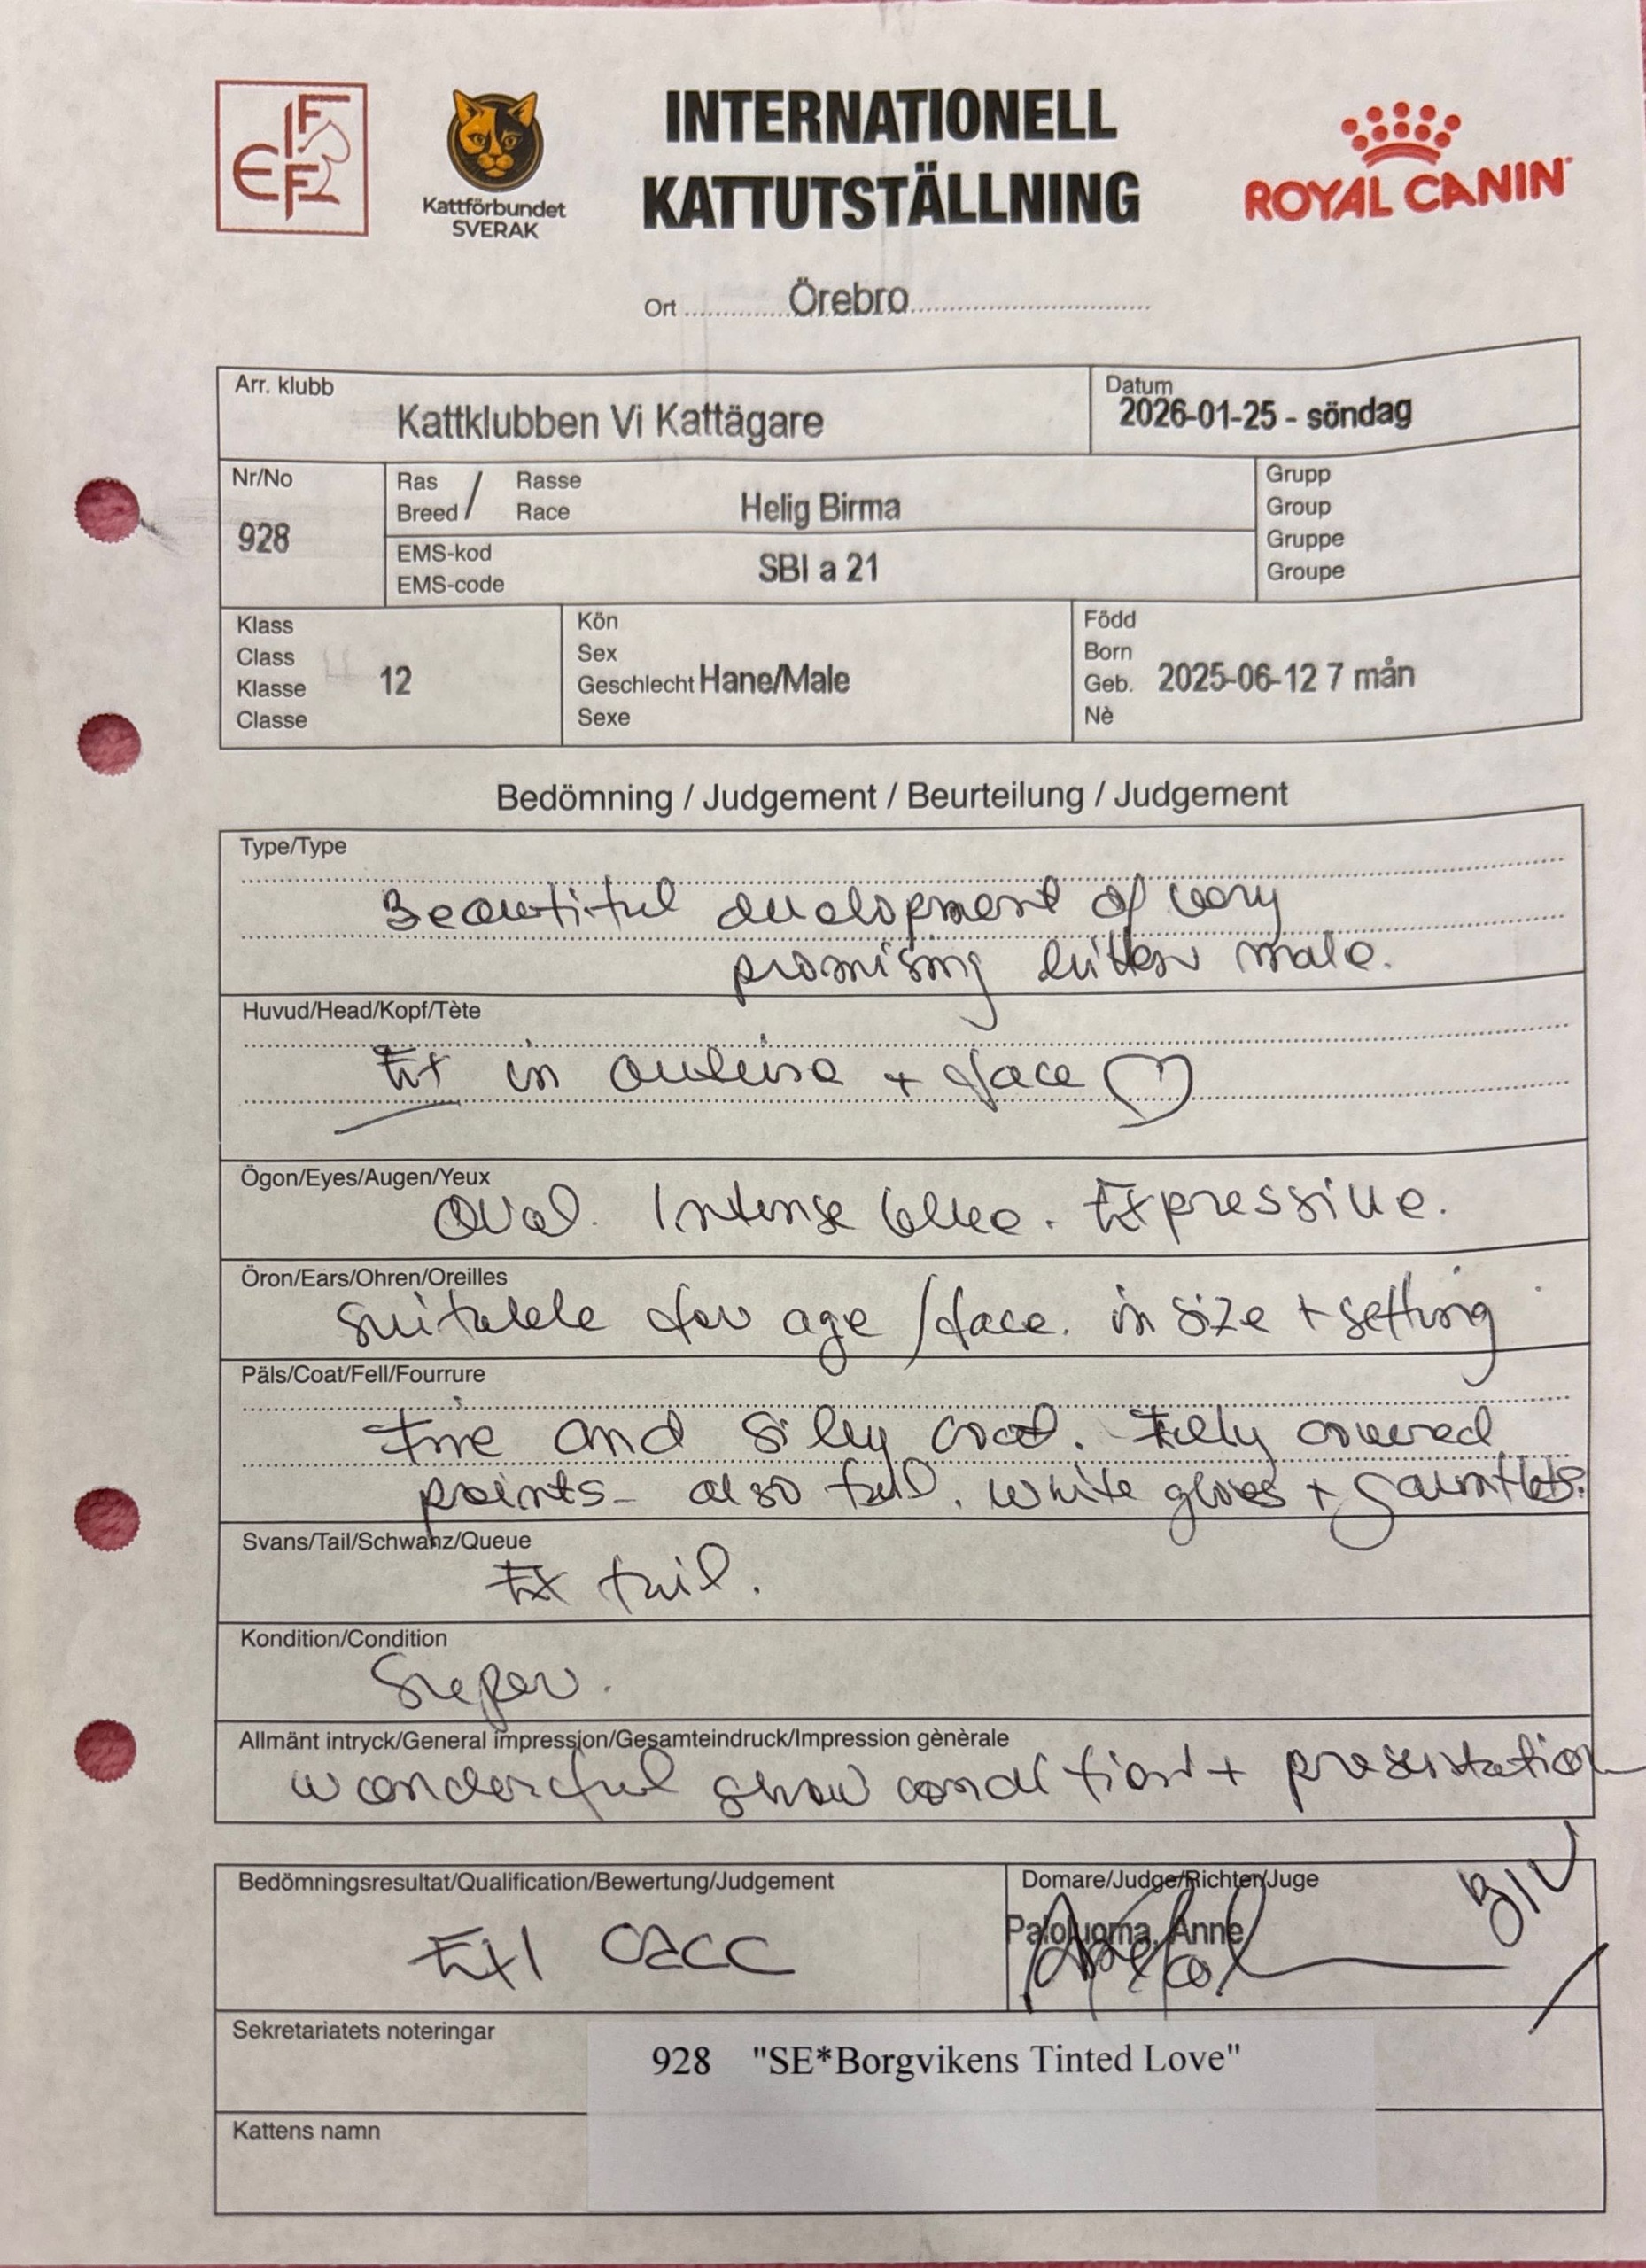 FIFE
Kattförbundet
SVERAK
INTERNATIONELL
KATTUTSTÄLLNING
ROYAL CANIN
Ort Örebro
Arr. klubb
Kattklubben Vi Kattägare
Datum
2026-01-25 - söndag
Nr/No
928
Ras / Rasse
Breed / Race
Helig Birma
EMS-kod
EMS-code
SBI a 21
Grupp
Group
Gruppe
Groupe
Klass
Class
Klasse
Classe
12
Kön
Sex
Geschlecht Hane/Male
Sexe
Född
Born
Geb. 2025-06-12 7 mån
Nè
Bedömning / Judgement / Beurteilung / Judgement
Type/Type
Beautiful development of very
promising kitten male.
Huvud/Head/Kopf/Tète
Ex in outline + face ♡
Ögon/Eyes/Augen/Yeux
Oval. Intense blue. Expressive.
Öron/Ears/Ohren/Oreilles
Suitable for age /face. in size + setting
Päls/Coat/Fell/Fourrure
Fine and silky coat. Fully covered
points- also tail. White gloves + gauntlets.
Svans/Tail/Schwanz/Queue
Ex tail.
Kondition/Condition
Super.
Allmänt intryck/General impression/Gesamteindruck/Impression gènèrale
Wonderful show condition + presentation
Bedömningsresultat/Qualification/Bewertung/Judgement
Ex1 CACC
Domare/Judge/Richter/Juge
Paloluoma, Anne
BIV
Sekretariatets noteringar
928 "SE*Borgvikens Tinted Love"
Kattens namn